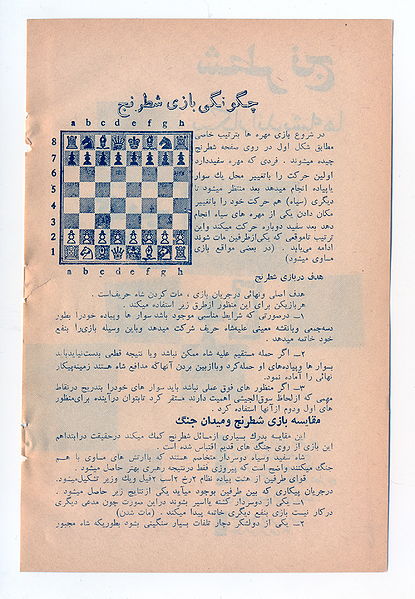 چگونگی بازی شطرنج
a b c d e f g h
8
7
6
5
4
3
2
1
a b c d e f g h
در شروع بازی مهره ها بترتیب خاصی
مطابق شکل اول در روی صفحه شطرنج
چیده میشوند . فردی که مهره سفیددارد
اولین حرکت را باتغییر محل یك سوار
یاپیاده انجام میدهد بعد منتظر میشود تا
دیگری (سیاه) هم حرکت خود را باتغییر
مکان دادن یکی از مهره های سیاه انجام
دهد بعد سفید دوباره حرکت میکند واین
ترتیب تاموقعی که یکی‌ازطرفین مات شوند
ادامه می‌یابد . (در بعضی مواقع بازی
مساوی میشود)
هدف دربازی شطرنج
هدف اصلی ونهائی درجریان بازی ، مات کردن شاه حریف‌است .
هربازیکن برای این منظور ازطرق زیر استفاده میکند :
۱ـ درصورتی که شرایط مناسبی موجود باشد سوار ها وپیاده خودرا بطور
دسته‌جمعی وبانقشه معینی علیه‌شاه حریف شرکت میدهد وباین وسیله بازی‌را بنفع
خود خاتمه میدهد .
۲ـ اگر حمله مستقیم علیه شاه ممکن نباشد ویا نتیجه قطعی بدست‌نیایدباید
سوار ها وپیاده‌های او حمله‌کرد وباازبین بردن آنهاکه مدافع شاه هستند زمینه‌پیکار
نهائی را آماده نمود.
۳ـ اگر منظور های فوق عملی نباشد باید سوار های خودرا بتدریج درنقاط
مهمی که ازلحاظ سوق‌الجیشی اهمیت دارند مستقر کرد تابتوان درآینده برای‌منظور
های اول ودوم ازآنها استفاده کرد .
مقایسه بازی شطرنج ومیدان جنگ
این مقایسه بدرك بسیاری ازمسائل شطرنج کمك میکند درحقیقت درابتداهم
این بازی از روی جنگ های قدیم اقتباس شده است .
شاه سفید وسیاه دوسردار متخاصم هستند که باارتش های مساوی با هم
جنگ میکنند واضح است که پیروزی فقط درنتیجه رهبری بهتر حاصل میشود .
قوای طرفین از هشت پیاده نظام ۲رخ ۲اسب ۲فیل ویك وزیر تشکیل‌میشود.
درجریان پیکاری که بین طرفین بوجود میآید یکی ازنتایج زیر حاصل میشود .
۱ـ یکی از دوسردار کشته یااسیر بشوند دراین‌صورت چون مدعی دیگری
درکار نیست بازی بنفع دیگری خاتمه پیدا میکند . (مات شدن)
۲ـ یکی از دولشکر دچار تلفات بسیار سنگینی بشود بطوریکه شاه مجبور